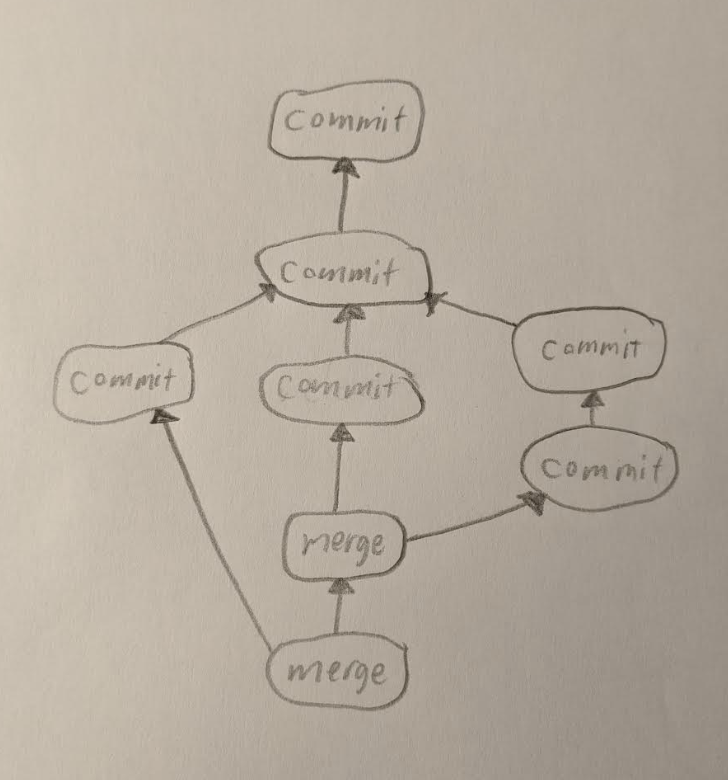 Commit
Commit
Commit
Commit
Commit
Commit
merge
merge